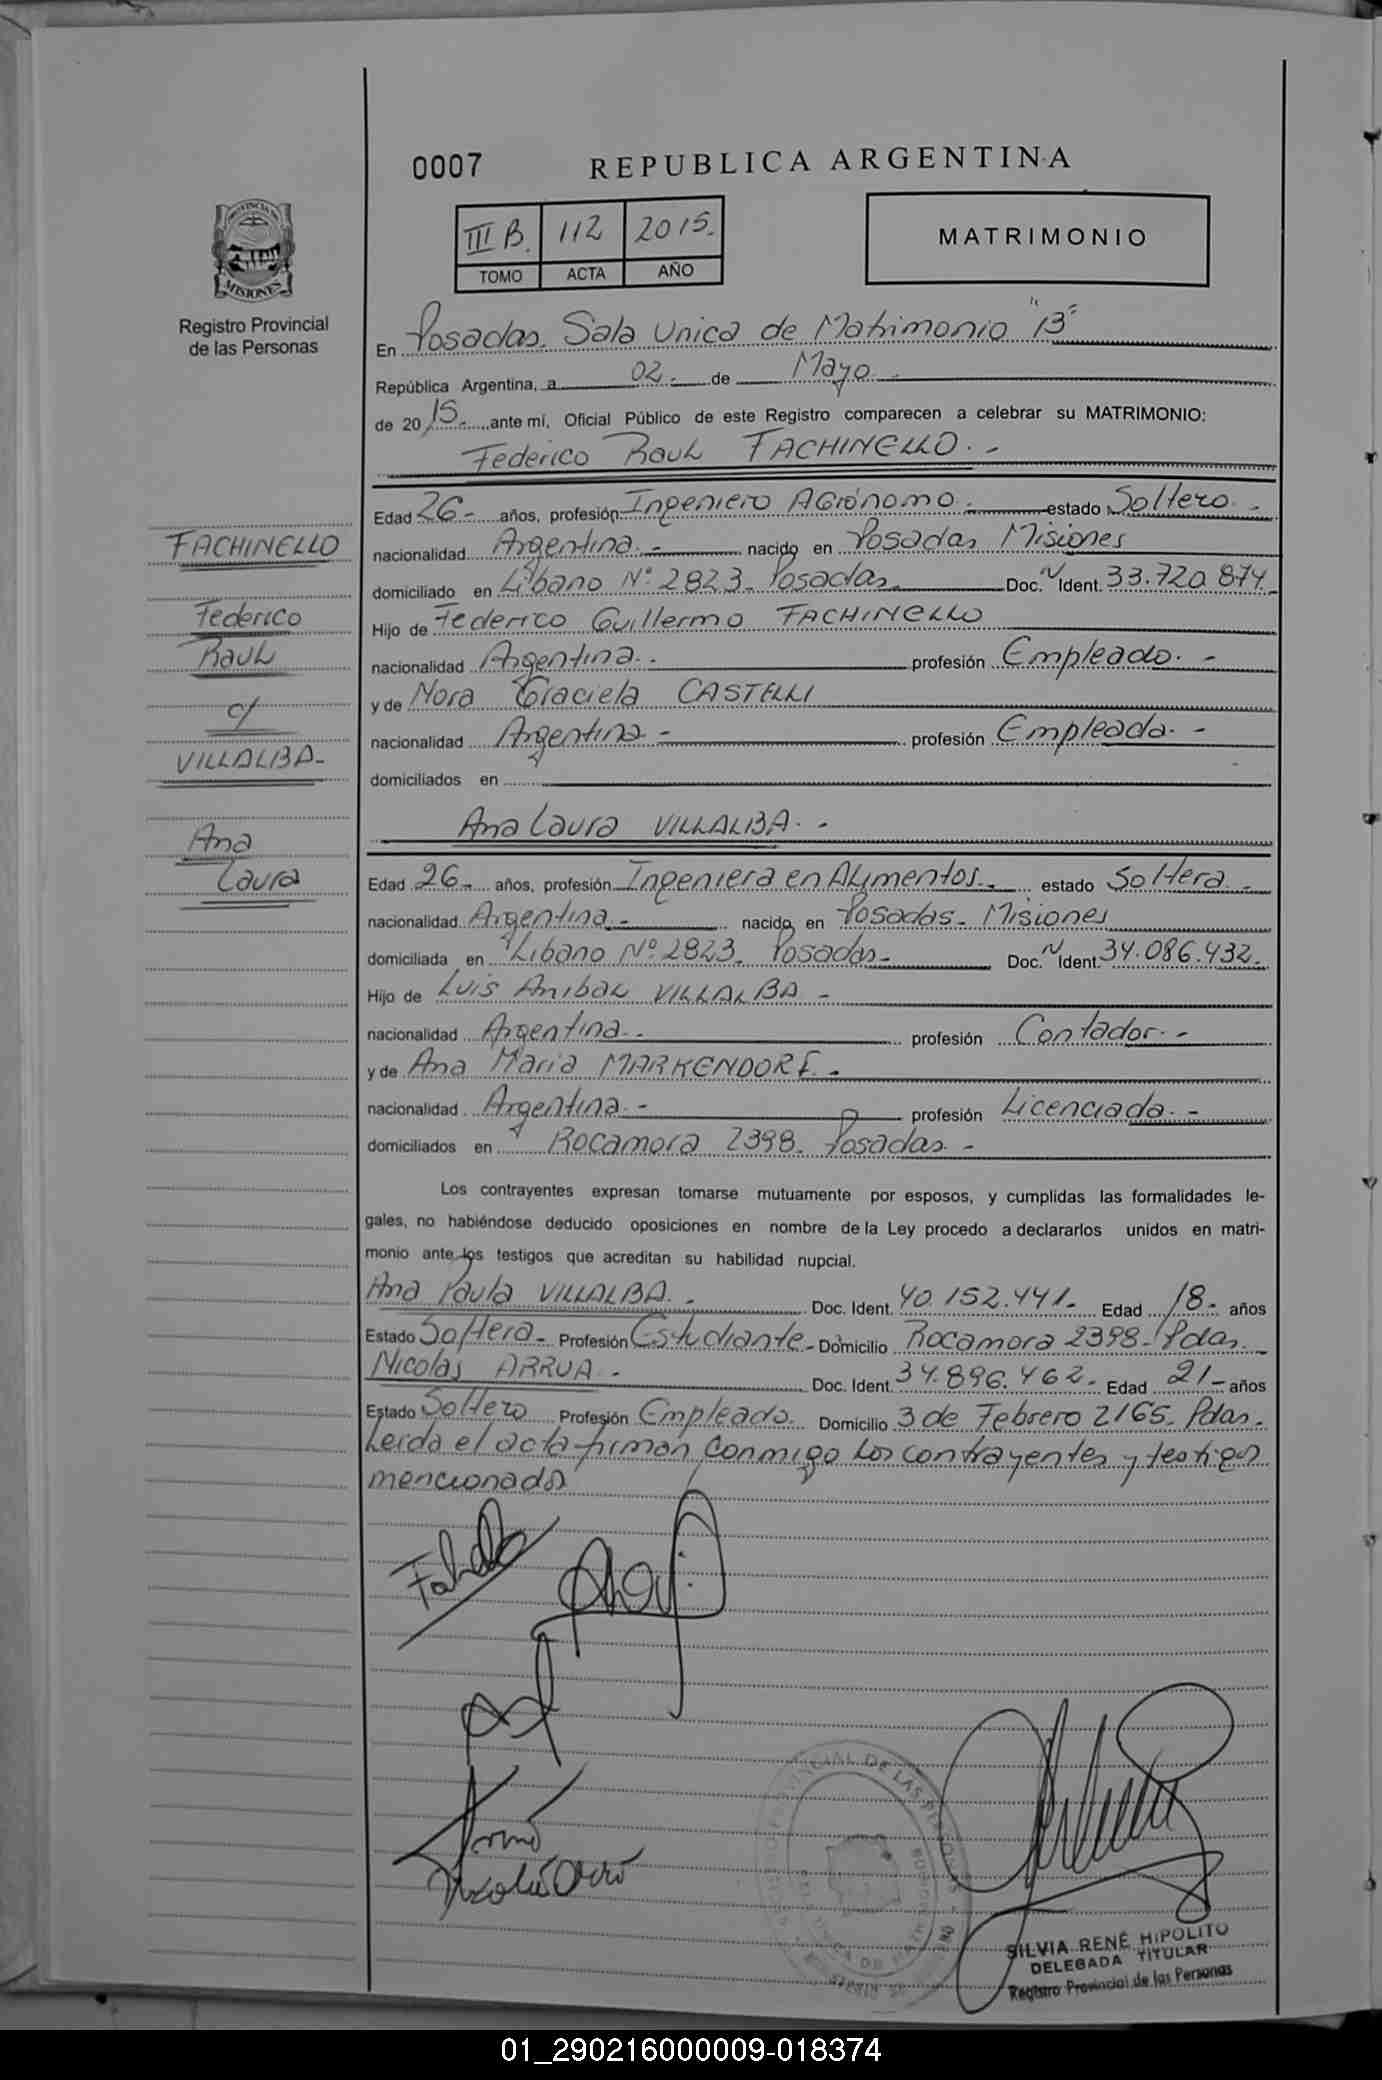 0007 REPUBLICA ARGENTINA
III B. 112 2015.
TOMO ACTA AÑO
MATRIMONIO
PROVINCIA DE
MISIONES
Registro Provincial
de las Personas
En Posadas. Sala Unica de Matrimonio "B"
República Argentina, a 02.- de Mayo.-
de 2015.- ante mí, Oficial Público de este Registro comparecen a celebrar su MATRIMONIO:
Federico Raul FACHINELLO.-
Edad 26.- años, profesión Ingeniero Agrónomo.- estado Soltero.-
nacionalidad Argentina.- nacido en Posadas Misiones
domiciliado en Libano Nº 2823. Posadas.- Doc. N Ident. 33.720.874.
Hijo de Federico Guillermo FACHINELLO
nacionalidad Argentina.- profesión Empleado.-
y de Nora Graciela CASTELLI
nacionalidad Argentina- profesión Empleada.-
domiciliados en
Ana Laura VILLALBA.-
Edad 26.- años, profesión Ingeniera en Alimentos.- estado Soltera.-
nacionalidad Argentina.- nacido en Posadas- Misiones
domiciliada en Libano Nº 2823. Posadas- Doc. N Ident. 34.086.432.
Hijo de Luis Anibal VILLALBA-
nacionalidad Argentina.- profesión Contador.-
y de Ana Maria MARKENDORF.-
nacionalidad Argentina.- profesión Licenciada.-
domiciliados en Rocamora 2398. Posadas.-
Los contrayentes expresan tomarse mutuamente por esposos, y cumplidas las formalidades le-
gales, no habiéndose deducido oposiciones en nombre de la Ley procedo a declararlos unidos en matri-
monio ante los testigos que acreditan su habilidad nupcial.
Ana Paula VILLALBA.- Doc. Ident. 40.152.441.- Edad 18.- años
Estado Soltera- Profesión Estudiante- Domicilio Rocamora 2398- Pdas.-
Nicolas ARRUA.- Doc. Ident. 34.896.462.- Edad 21- años
Estado Soltero Profesión Empleado. Domicilio 3 de Febrero 2165. Pdas.-
Leida el acta firman conmigo los contrayentes y testigos
mencionados
FACHINELLO
Federico
Raul
c/
VILLALBA-
Ana
Laura
SILVIA RENÉ HIPOLITO
DELEGADA TITULAR
Registro Provincial de las Personas
01_290216000009-018374